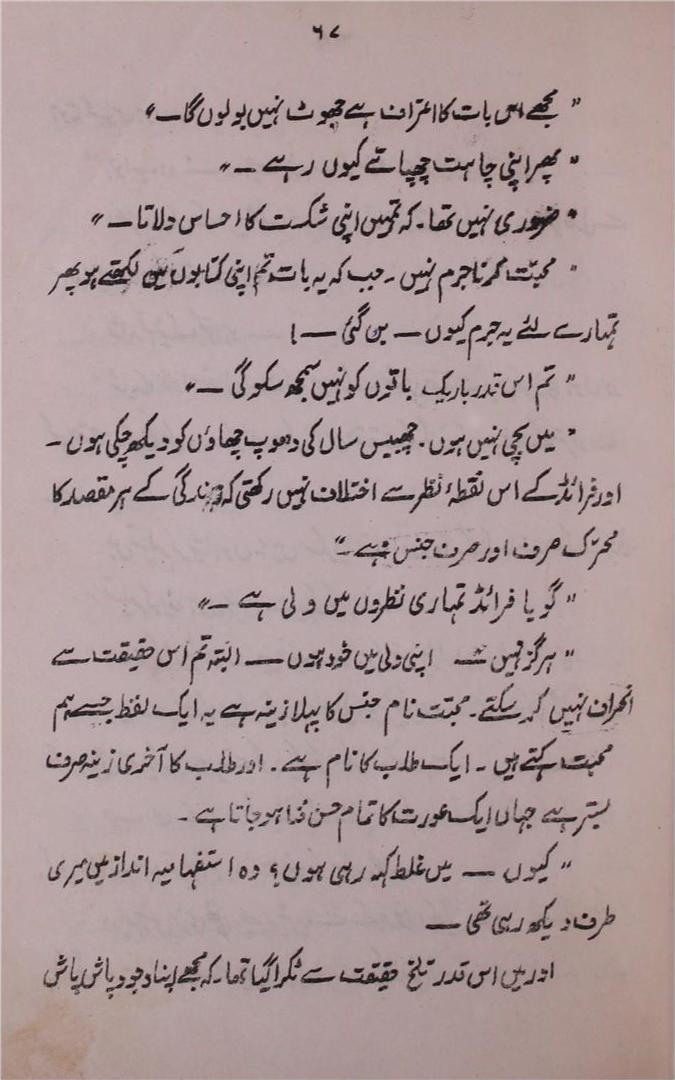 ۶۷
" مجھے اس بات کا اعتراف ہے جھوٹ نہیں بولوں گا ۔"
" پھر اپنی چاہت چھپاتے کیوں رہے ـــ "
" ضروری نہیں تھا ۔ کہ تمہیں اپنی شکست کا احساس دلاتا ـــ "
" محبّت کرنا جرم نہیں ۔ جب کہ یہ بات تم اپنی کتابوں میں لکھتے ہو پھر
تمہارے لئے یہ جرم کیوں ـــ بن گئی ـــ !
" تم اس قدر باریک باتوں کو نہیں سمجھ سکو گی ـــ "
" میں بچی نہیں ہوں ۔ چھبیس سال کی دھوپ چھاؤں کو دیکھ چکی ہوں ـــ
اور فرائڈ کے اس نقطۂ نظر سے اختلاف نہیں رکھتی کہ زندگی کے ہر مقصد کا
محرّک صرف اور صرف جنس ہے ۔"
" گویا فرائڈ تمہاری نظروں میں ولی ہے ـــ "
" ہرگز نہیں ـــ اپنی ولی میں خود ہوں ـــ البتہ تم اس حقیقت سے
انحراف نہیں کر سکتے ۔ محبّت نام جنس کا پہلا زینہ ہے یہ ایک لفظ جسے ہم
محبت کہتے ہیں ۔ ایک طلب کا نام ہے ۔ اور طلب کا آخری زینہ صرف
بستر ہے جہاں ایک عورت کا تمام حسن فدا ہو جاتا ہے ۔
" کیوں ـــ میں غلط کہہ رہی ہوں ؟ وہ استفہامیہ انداز میں میری
طرف دیکھ رہی تھی ـــ
اور میں اس قدر تلخ حقیقت سے ٹکرا گیا تھا ۔ کہ مجھے اپنا وجود پاش پاش